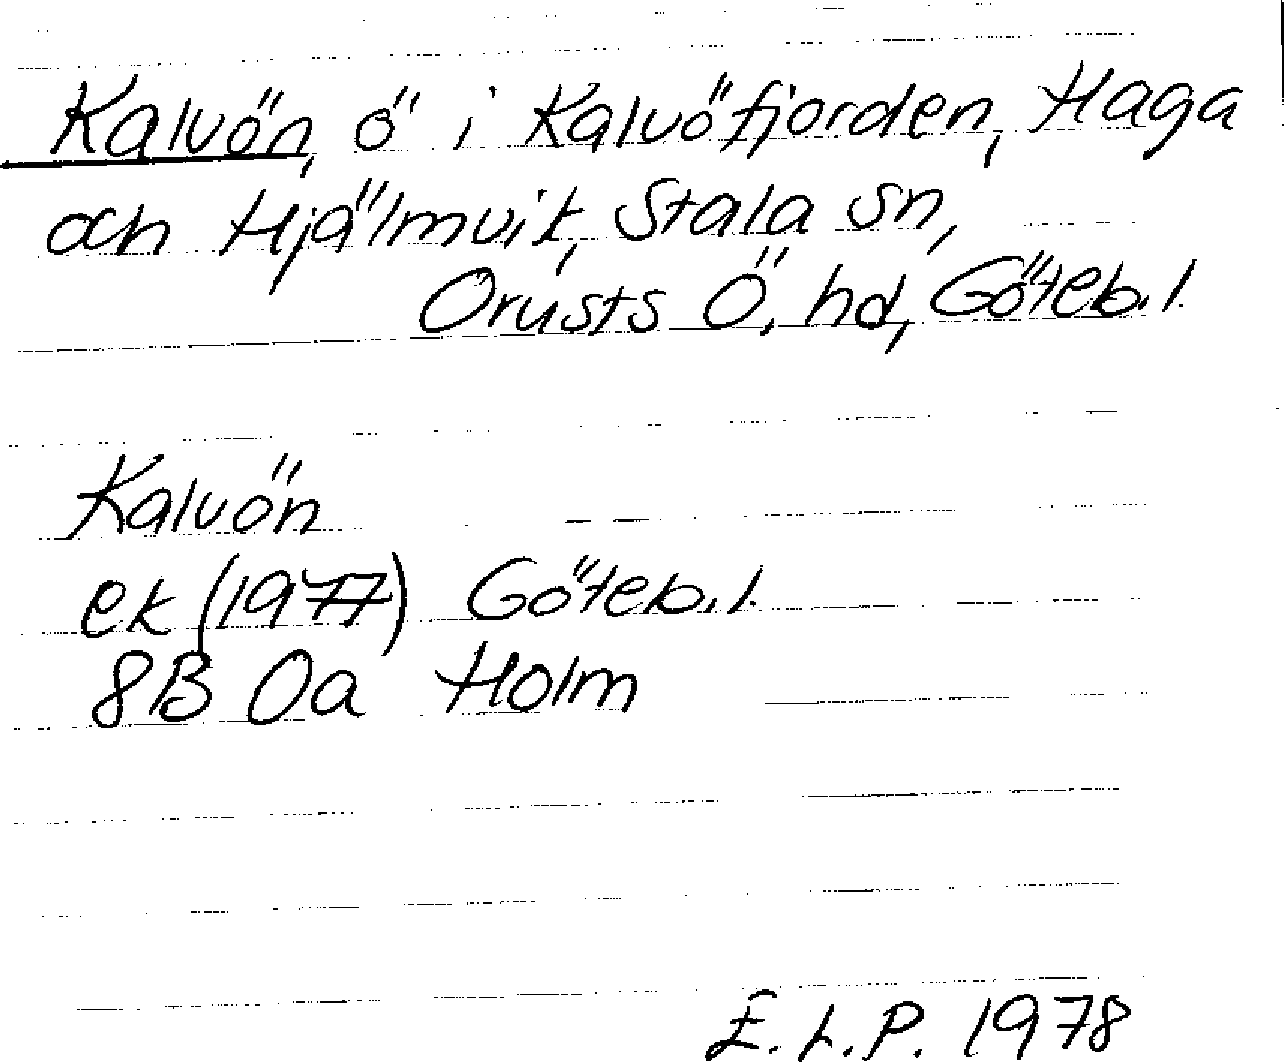 Kalvön, ö i Kalvöfjorden, Haga
och Hjälmvik, Stala sn,
Orusts Ö. hd, Göteb. l.
Kalvön
ek (1977) Göteb. l.
8B 0a Holm
E. L. P. 1978